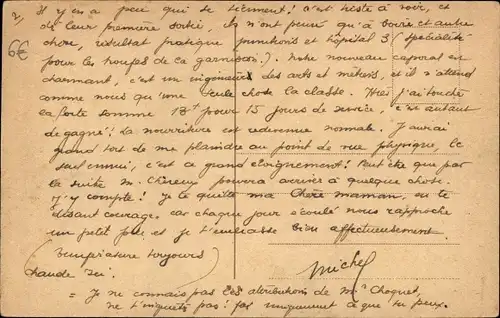 2/ Il y en a peu qui se tiennent! c'est triste à voir, et
6€
de leur première sortie, ils n'ont pensé qu'à boire et autre
chose, résultat pratique punitions et hôpital 3 (spécialité
pour les troupes de la garnison.). Notre nouveau caporal est
charmant, c'est un ingénieur des arts et métiers, et il n'attend
comme nous qu'une seule chose la classe. Hier j'ai touché
la forte somme pour 15 jours de service, c'est autant
de gagné! La nourriture est redevenue normale. J'aurai
grand tort de me plaindre au point de vue physique, le
seul ennui, c'est ce grand éloignement! Peut être que par
la suite M. Chéreux pourra arriver à quelque chose.
J'y compte! je te quitte ma Chère maman, en te
disant courage, car chaque jour s'écoule nous rapproche
un petit peu et je t'embrasse bien affectueusement.
(température toujours
chaude ici.)
Michel
= Je ne connais pas les attributions de Mr Choquet,
ne t'inquiète pas! fais uniquement ce que tu peux.